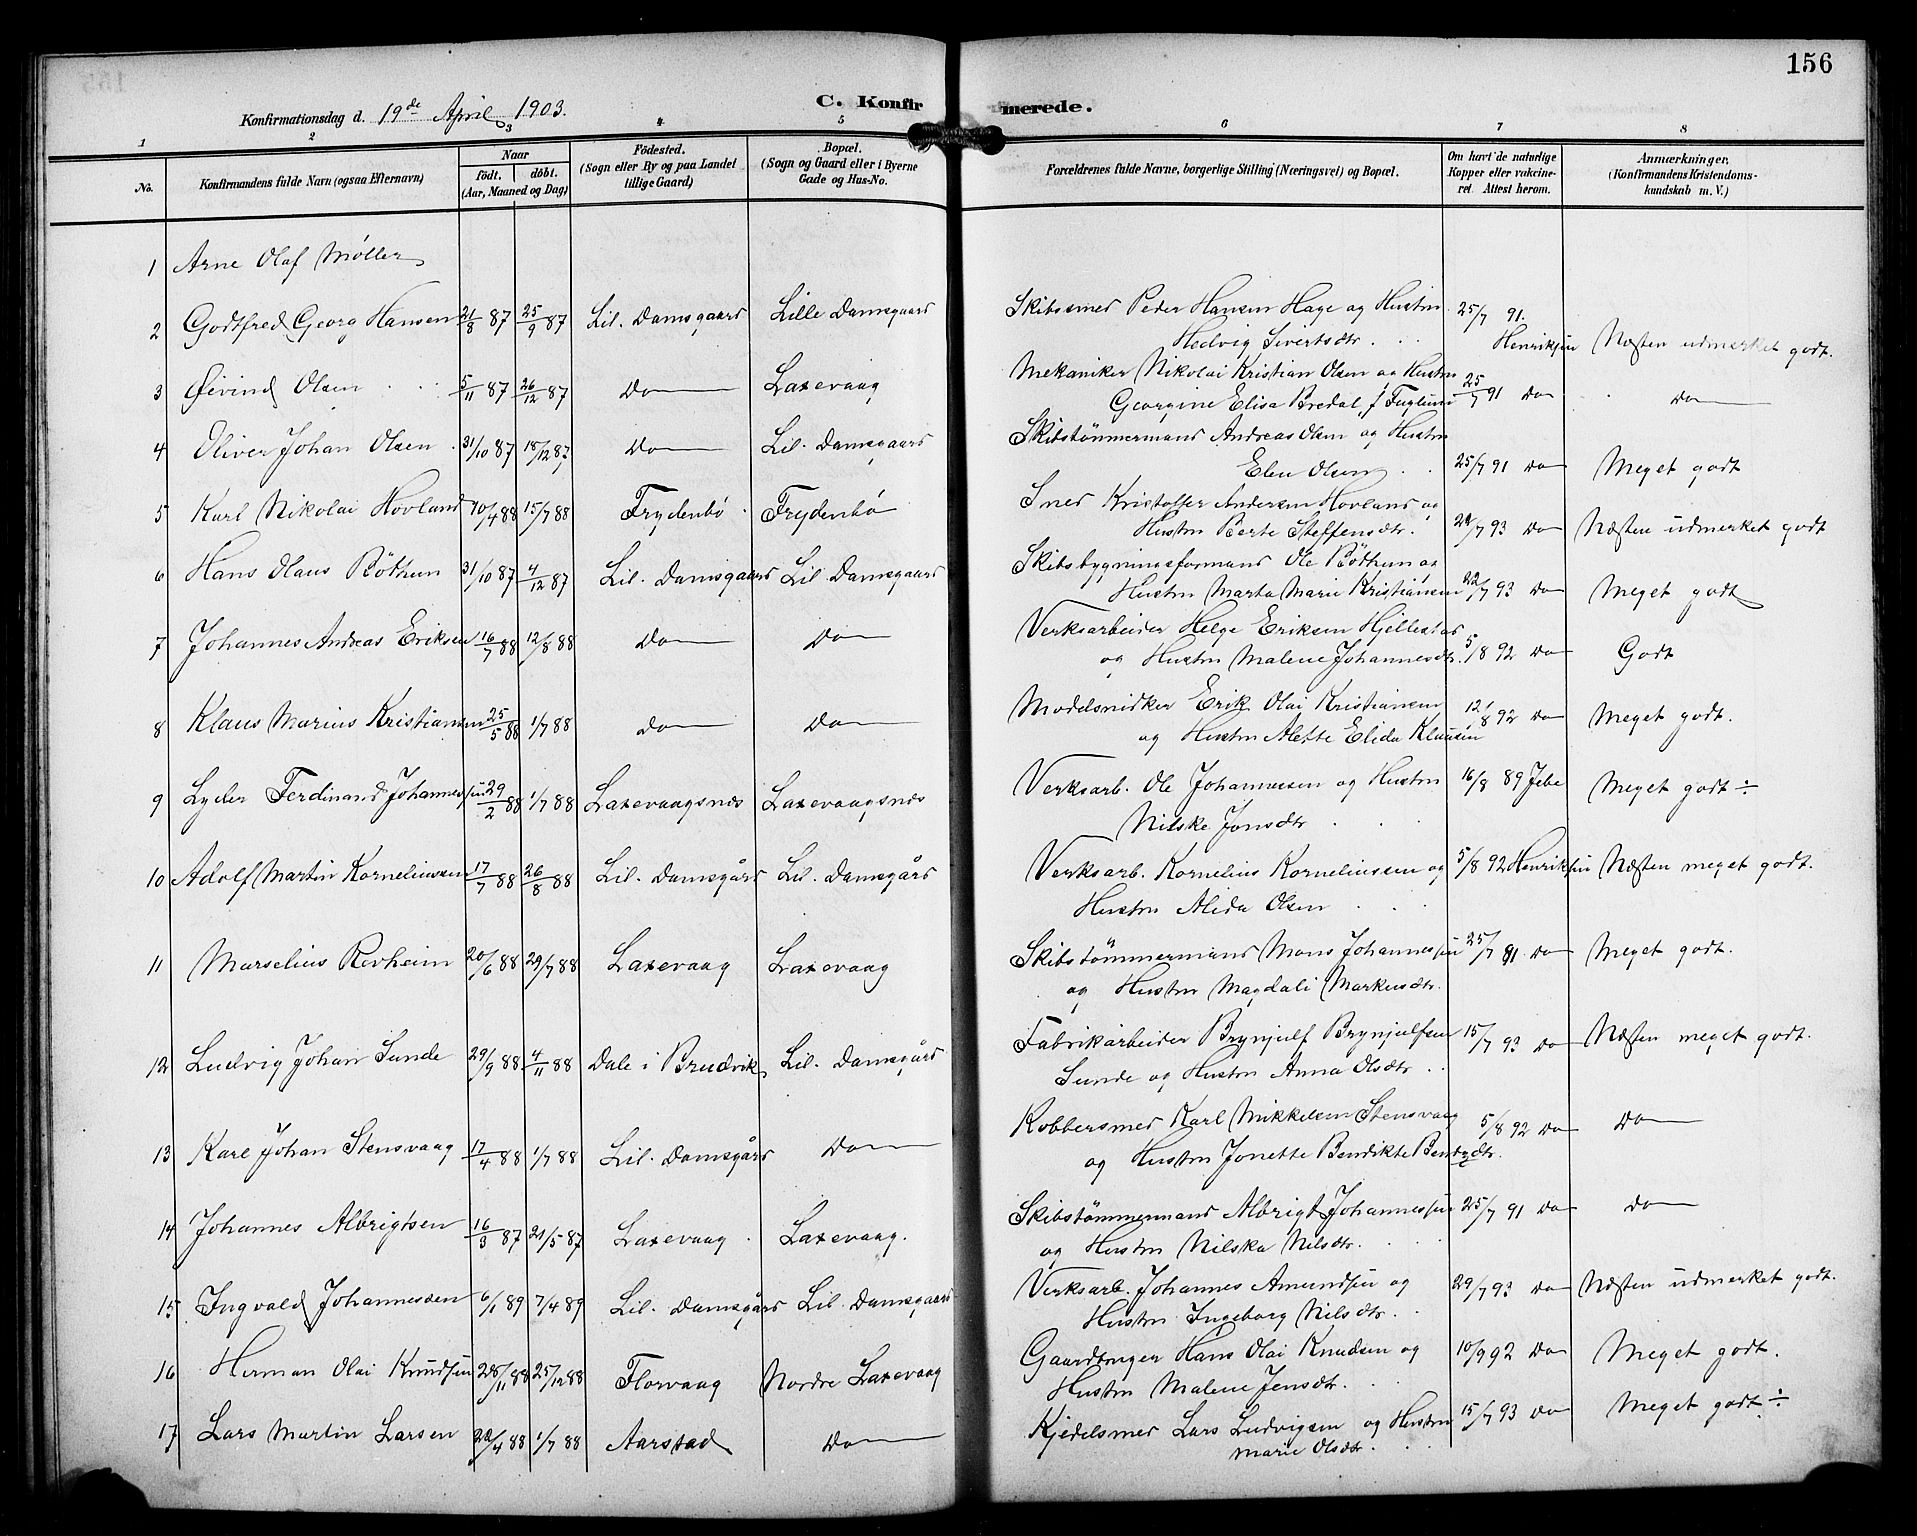 156
C. Konfirmerede.
Konfirmationsdag d. 19de April 1903.
1 2 3 4 5 6 7 8
No. Konfirmandens fulde Navn (ogsaa Efternavn) Naar födt, döbt. (Aar, Maaned og Dag) Födested. (Sogn eller By og paa Landet tillige Gaard) Bopæl. (Sogn og Gaard eller i Byerne Gade og Hus-No. Forældrenes fulde Navne, borgerlige Stilling (Næringsvei) og Bopæl. Om havt de naturlige Kopper eller vakcineret. Attest herom. Anmærkninger. (Konfirmandens Kristendomskundskab m. V.)
1 Arne Olaf Møller
2 Godtfred Georg Hansen 21/8 87 25/9 87 Lil. Damsgaard Lille Damsgaard Skibssmed Peder Hansen Hage og Hustru 25/7 91.
Hedvig Sivertsdtr. Henriksen Næsten udmerket godt.
3 Øivind Olsen 5/11 87 26/12 87 Do Laxevaag Mekaniker Nikolai Kristian Olsen og Hustru
Georgine Elisa Bredal f. Fuglund 25/7 91 Do Do
4 Oliver Johan Olsen 31/10 87 18/12 87 Do Lil. Damsgaard Skibstömmermand Andreas Olsen og Hustru
Elen Olsen 25/7 91 Do Meget godt
5 Karl Nikolai Hovland 10/4 88 15/7 88 Frydenbø Frydenbø Smed Kristoffer Andersen Hovland og
Hustru Berte Steffensdtr. 22/7 93 Do Næsten udmerket godt
6 Hans Olaus Böthun 31/10 87 4/12 87 Lil. Damsgaard Lil. Damsgaard Skibsbygningsformand Ole Böthun og
Hustru Marta Marie Kristiansen 22/7 93 Do Meget godt
7 Johannes Andreas Eriksen 16/7 88 12/8 88 Do Do Verksarbeider Helge Eriksen Hjellestad
og Hustru Malene Johannesdtr. 5/8 92 Do Godt
8 Klaus Marius Kristiansen 25/5 88 1/7 88 Do Do Modelsnidker Erik Olai Kristiansen
og Hustru Alette Elida Klausen 12/8 92 Do Meget godt.
9 Lyder Ferdinand Johannesen 29/2 88 1/7 88 Laxevaagsnes Laxevaagsnes Verksarb. Ole Johannessen og Hustru 16/8 89 Jebe Meget godt ÷
Nilske Jonsdtr
10 Adolf Martin Korneliussen 17/7 88 26/8 88 Lil. Damsgård Lil. Damsgård Verksarb. Kornelius Korneliussen og 5/8 92 Henriksen Næsten meget godt.
Hustru Alida Olsen
11 Marselius Revheim 20/6 88 29/7 88 Laxevaag Laxevaag Skibstömmermand Mons Johannesen 25/7 91 Do Meget godt.
og Hustru Magdali Markusdtr.
12 Ludvig Johan Sunde 29/9 88 4/11 88 Dale i Bruvik Lil. Damsgård Fabrikarbeider Brynjulf Brynjulfsen 15/7 93 Do Næsten meget godt.
Sunde og Hustru Anna Olsdtr
13 Karl Johan Stensvaag 17/4 88 1/7 88 Lil. Damsgård Do Kobbersmed Karl Mikkelsen Stensvaag 5/8 92 Do Do
og Hustru Jonette Bendikte Bendtsdtr.
14 Johannes Albrigtsen 16/3 87 21/5 87 Laxevaag Laxevaag. Skibstömmermand Albrigt Johannesen 25/7 91 Do Do
og Hustru Nilska Nilsdtr.
15 Ingvald Johannessen 6/1 89 7/4 89 Lil. Damsgård Lil. Damsgaard Verksarb. Johannes Amundsen og 29/7 93 Do Næsten udmerket godt.
Hustru Ingeborg Nilsdtr.
16 Herman Olai Knudsen 28/11 88 25/12 88 Florvaag Nordre Laxevaag Gaardbruger Hans Olai Knudsen og 10/9 92 Do Meget godt.
Hustru Malene Jensdtr.
17 Lars Martin Larsen 22/4 88 1/7 88 Aarstad Do Kjedelsmed Lars Ludvigsen og Hustru 15/7 93 Do Meget godt ÷
Marie Olsdtr.